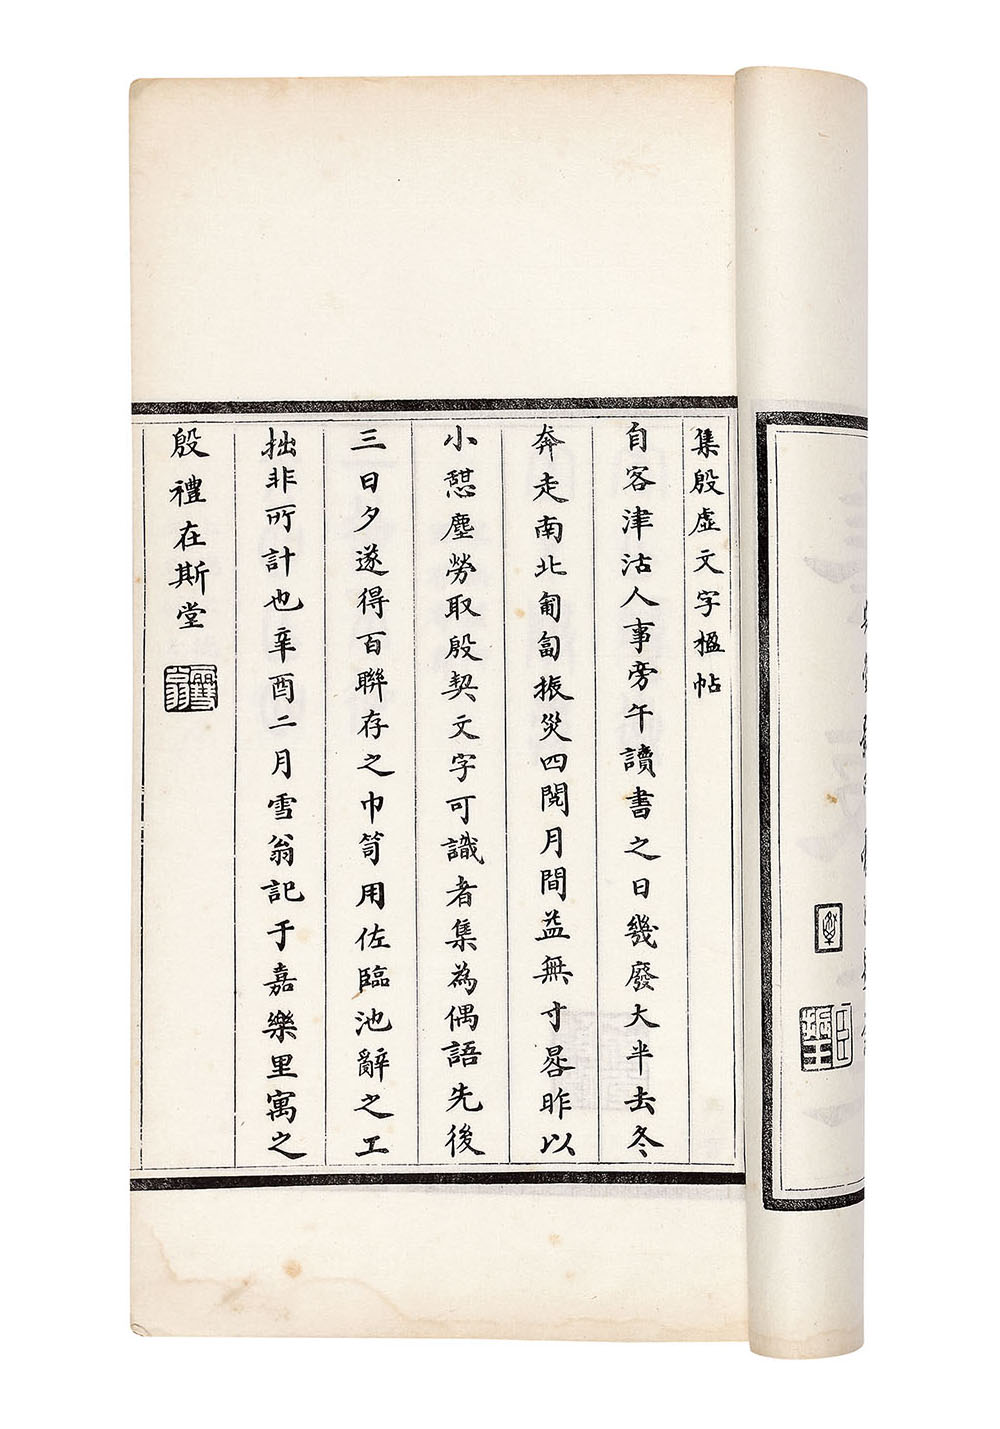 集殷虛文字楹帖
自客津沽人事旁午讀書之日幾廢大半去冬
奔走南北匍匐振災四閱月間益無寸晷昨以
小憇塵勞取殷契文字可識者集為偶語先後
三日夕遂得百聯存之巾笥用佐臨池辭之工
拙非所計也辛酉二月雪翁記于嘉樂里寓之
殷禮在斯堂
雪翁